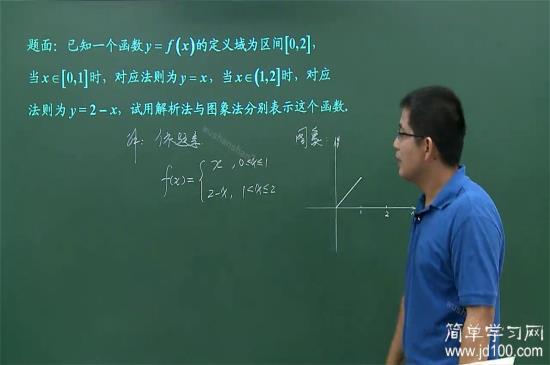 题面：已知一个函数y=f(x)的定义域为区间[0,2]，
当x∈[0,1]时，对应法则为y=x，当x∈(1,2]时，对应
法则为y=2-x，试用解析法与图象法分别表示这个函数.
解：依题意 图象：
f(x)={ x，0≤x≤1
2-x，1<x≤2
1 2
简单学习网
www.jd100.com